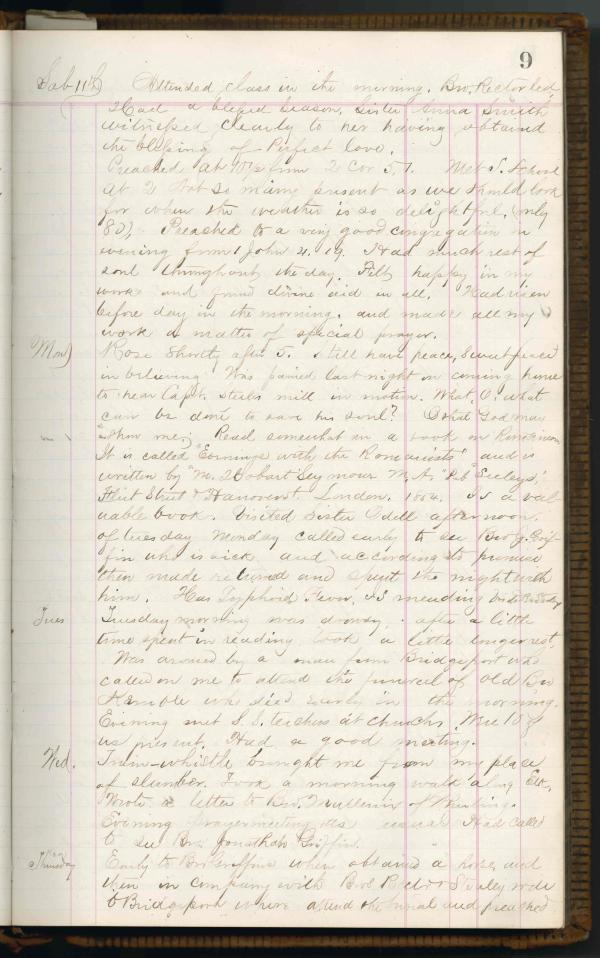 9
Sab 11th Attended class in the morning. Bro. Rector led,
Had a blessed season. Sister Anna Smith
witnessed clearly to her having obtained
the blessing of Perfect love.
Preached at 10½ from 2 Cor 5,1. Met S. School
at 2 Not so many present as we should look
for when the weather is so delightful, (only
80). Preached to a very good congregation in
evening from 1 John 4.19. Had much rest of
soul throughout the day. Felt happy in my
work and found divine aid in all. Had risen
before day in the morning. and made all my
work a matter of special prayer.
Mon) Rose shortly after 5. Still have peace, sweet peace
in believing. Was pained last night on coming home
to hear Capt. Steels mill in motion. What, O! what
can be done to save his soul? O that God may
show me. Read somewhat in a book on Romanism
It is called "Evenings with the Romanists" and is
written by "M. Hobart Seymour M.A. "Pub Seeleys,"
Fleet Street & Hanover St London. Is a val-
uable book. Visited Sister Odell afternoon.
of Tuesday Monday called early to see Bro J. Grif-
fin who is sick and according to promise
then made returned and spent the night with
him. Has Typhoid Fever, is mending
Tues Tuesday morning was drowsy, after a little
time spent in reading took a little longer rest.
Was aroused by a man from Bridgeport who
called on me to attend the funeral of Old Bro
Kemble who died early in the morning.
Evening met S. S. teachers at church. Were 18 of
us present. Had a good meeting.
Wed. Train-whistle brought me from my place
of slumber. Took a morning walk along Elk,
Wrote a letter to Bro. Mullenix of Wheeling.
Evening prayermeeting as usual Had called
to see Bro Jonathan Griffin.
Thursday Early to Bro Griffins when obtained a horse and
then in company with Bros Rector & Staley rode
to Bridgeport where attend the burial and preached